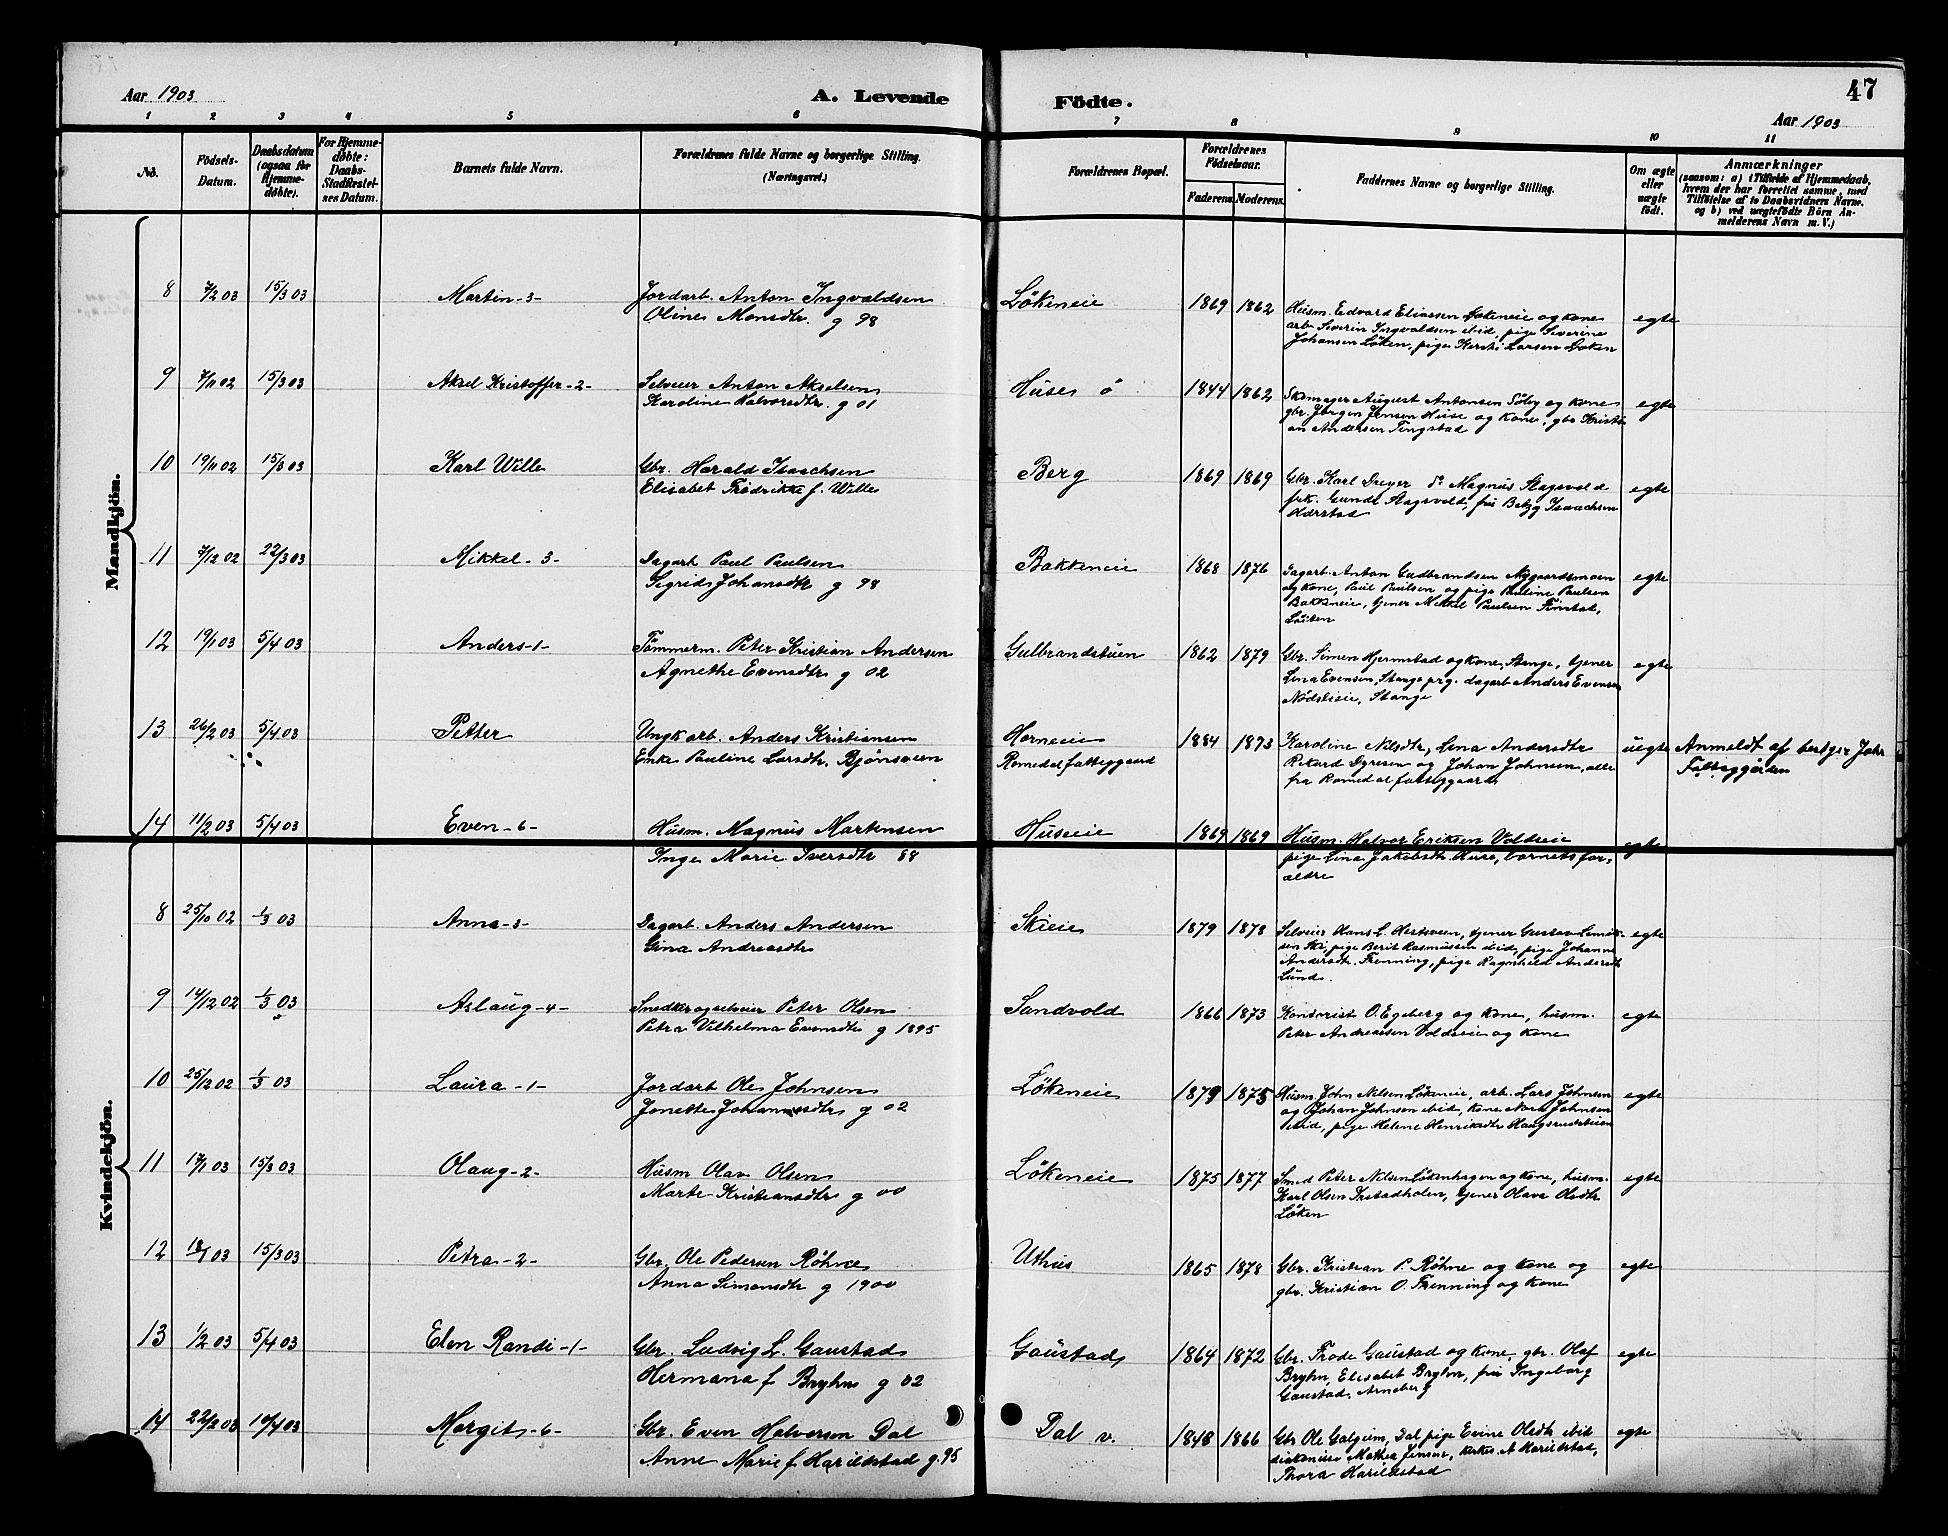 47
Aar 1903
A. Levende
Födte.
Aar 1903
1 2 3 4 5 6 7 8 9 10 11
No.
Födsels-Datum.
Daabsdatum (ogsaa for Hjemmedöbte).
For Hjemmedöbte: Daabs-Stadfæstelses Datum.
Barnets fulde Navn.
Forældrenes fulde Navne og borgerlige Stilling.
(Næringsvei.)
Forældrenes Bopæl.
Forældrenes Födselsaar.
Faderens. Moderens.
Faddernes Navne og borgerlige Stilling.
Om ægte eller uægte födt.
Anmærkninger
(saasom: a) i Tilfælde af Hjemmedaab,
hvem der har forrettet samme, med
Tilföielse af to Daabsvidners Navne.
og b) ved uægtefödte Börn An-
melderens Navn m. V.)
Mandkjön.
8 7/2 03 15/3 03 Martin -3- Jordarb. Anton Ingvaldsen Lökeneie 1869 1862 Husm. Edvard Eliassen Lökeneie og kone egte
Oline Monsdtr. g 98 arb. Severin Ingvaldsen ibid, pige Severine
Johansen Löken, pige Kersti Larsen Löken
9 7/11 02 15/3 03 Aksel Kristoffer -2- Selveier Anton Akselsen Huse ö 1844 1862 Skomager August Antonsen Söby og kone egte
Karoline Halvorsdtr. g 01 gbr. Jörgen Jensen Huse og kone, gbr Kristi-
an Andersen Tingstad
10 19/11 02 15/3 03 Karl Wille Gbr. Harald Isaachsen Berg 1869 1869 Gbr. Karl Dreyer Magnus Stagsvold egte
Elisabet Fredrikke f. Wille frk. Gunda Stagsvold, fru Betzy Isaachsen
11 7/12 02 22/3 03 Mikkel -3- Dagarb Paul Paulsen Bakkeneie 1868 1876 Dagarb. Anton Gudbrandsen Nygaardsmoen egte
Sigrid Johansdtr g 98 og kone, Paul Paulsen og pige Pauline Paulsen
Bakkeneie, tjener Mikkel Paulsen Finstad,
Löiten
12 19/1 03 5/4 03 Anders -1- Tömmerm. Peter Kristian Andersen Gulbrandstuen 1862 1879 Gbr. Simen Hjermstad og kone, Stange, tjener egte
Agnethe Evensdtr g 02 Lina Evensen, Stange prg. dagarb Anders Evensen
Nödstieie, Stange
13 26/2 03 5/4 03 Petter Ungk. arb. Anders Kristiansen Horneie 1884 1873 Karoline Nilsdtr, Lina Andersdtr uegte Anmeldt af bestyr. Johr
Enke Pauline Larsdtr, Bjönsveen Romedal fattiggaard Rikard Dyresen og Johan Johnsen, alle Fattiggården
fra Romedal fattiggaard
14 11/2 03 5/4 03 Even -6- Husm. Magnus Martinsen Huseie 1869 1869 Husm. Halvor Eriksen Voldseie egte
Inge Marie Iversdtr 88 pige Lina Jakobsdtr. Huse, barnets for-
ældre
Kvindekjön.
8 25/10 02 1/3 03 Anna -3- Dagarb. Anders Andersen Skieie 1879 1878 Selveier Hans L. Hertsveen, tjener Gustav egte
Gina Andreasdtr sen Ski, pige Berit Rasmussen ibid, pige Johanne
Andersdtr. Frenning, pige Ragnhild Andersdtr
Lund.
9 14/12 02 1/3 03 Aslaug -4- Snedker og selveier Peter Olsen Sandvold 1866 1873 Kontorist O. Egeberg og kone, husm. egte
Petra Vilhelma Evensdtr g 1895 Peter Andreassen Voldseie og kone
10 25/12 02 1/3 03 Laura -1- Jordarb Ole Johnsen Lökeneie 1879 1875 Husm. John Nilsen Lökeneie, arb. Lars Johnsen egte
Jonette Johannesdtr g 02 og Johan Johnsen ibid, kone Marte Johnsen
ibid, pige Helene Henriksdtr Haugsrudstuen
11 17/1 03 15/3 03 Olaug -2- Husm Olav Olsen Lökeneie 1875 1877 Smed Peter Nilsen Lökenhagen og kone, husm. egte
Marte Kristiansdtr g 00 Karl Olsen Ilstadholen, tjener Olava Olsdtr
Löken
12 18/1 03 15/3 03 Petra -2- Gbr. Ole Pedersen Röhne Uthus 1865 1878 Gbr. Kristian P. Röhne og kone og egte
Anna Simensdtr g 1900 gbr. Kristian O. Frenning og kone
13 1/2 03 5/4 03 Elen Randi -1- Gbr. Ludvig L. Gaustad Gaustad 1864 1872 Gbr. Frode Gaustad og kone, gbr. Olaf egte
Hermana f Bryhn g 02 Bryhn, Elisabet Bryhn, fru Ingeborg
Gaustad, Arneberg
14 22/2 03 10/4 03 Margit -6- Gbr. Even Halvorsen Dal Dal v. 1848 1866 Gbr Ole Galgum, Dal pige Evine Olsdtr ibid egte
Anne Marie f Harildstad g. 95 diakonisse Mathea Jensen, kirkes. A Harildstad,
Thora Harildstad